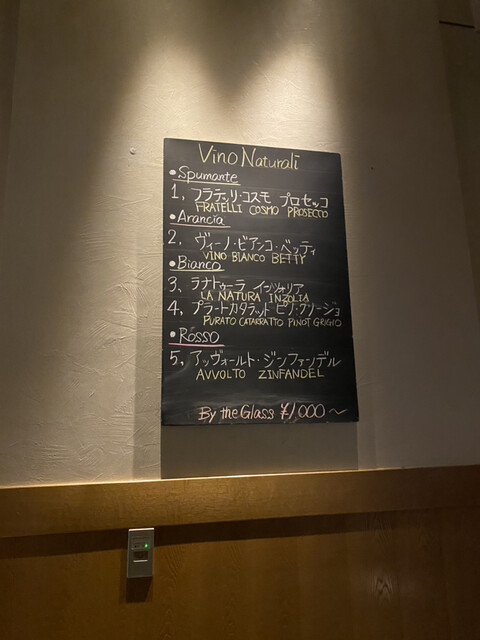 Vino Naturali
• Spumante
1, フラテッリ・コスモ プロセッコ
FRATELLI COSMO PROSECCO
• Arancia
2. ヴィーノ・ビアンコ・ベッティ
VINO BIANCO BETTY
• Bianco
3, ラナトゥーラ インツォリア
LA NATURA INZOLIA
4, プラートカタラット ピノ・グリージョ
PURATO CATARRATTO PINOT GRIGIO
• Rosso
5, アッヴォールト・ジンファンデル
AVVOLTO ZINFANDEL
By the Glass ¥1,000〜